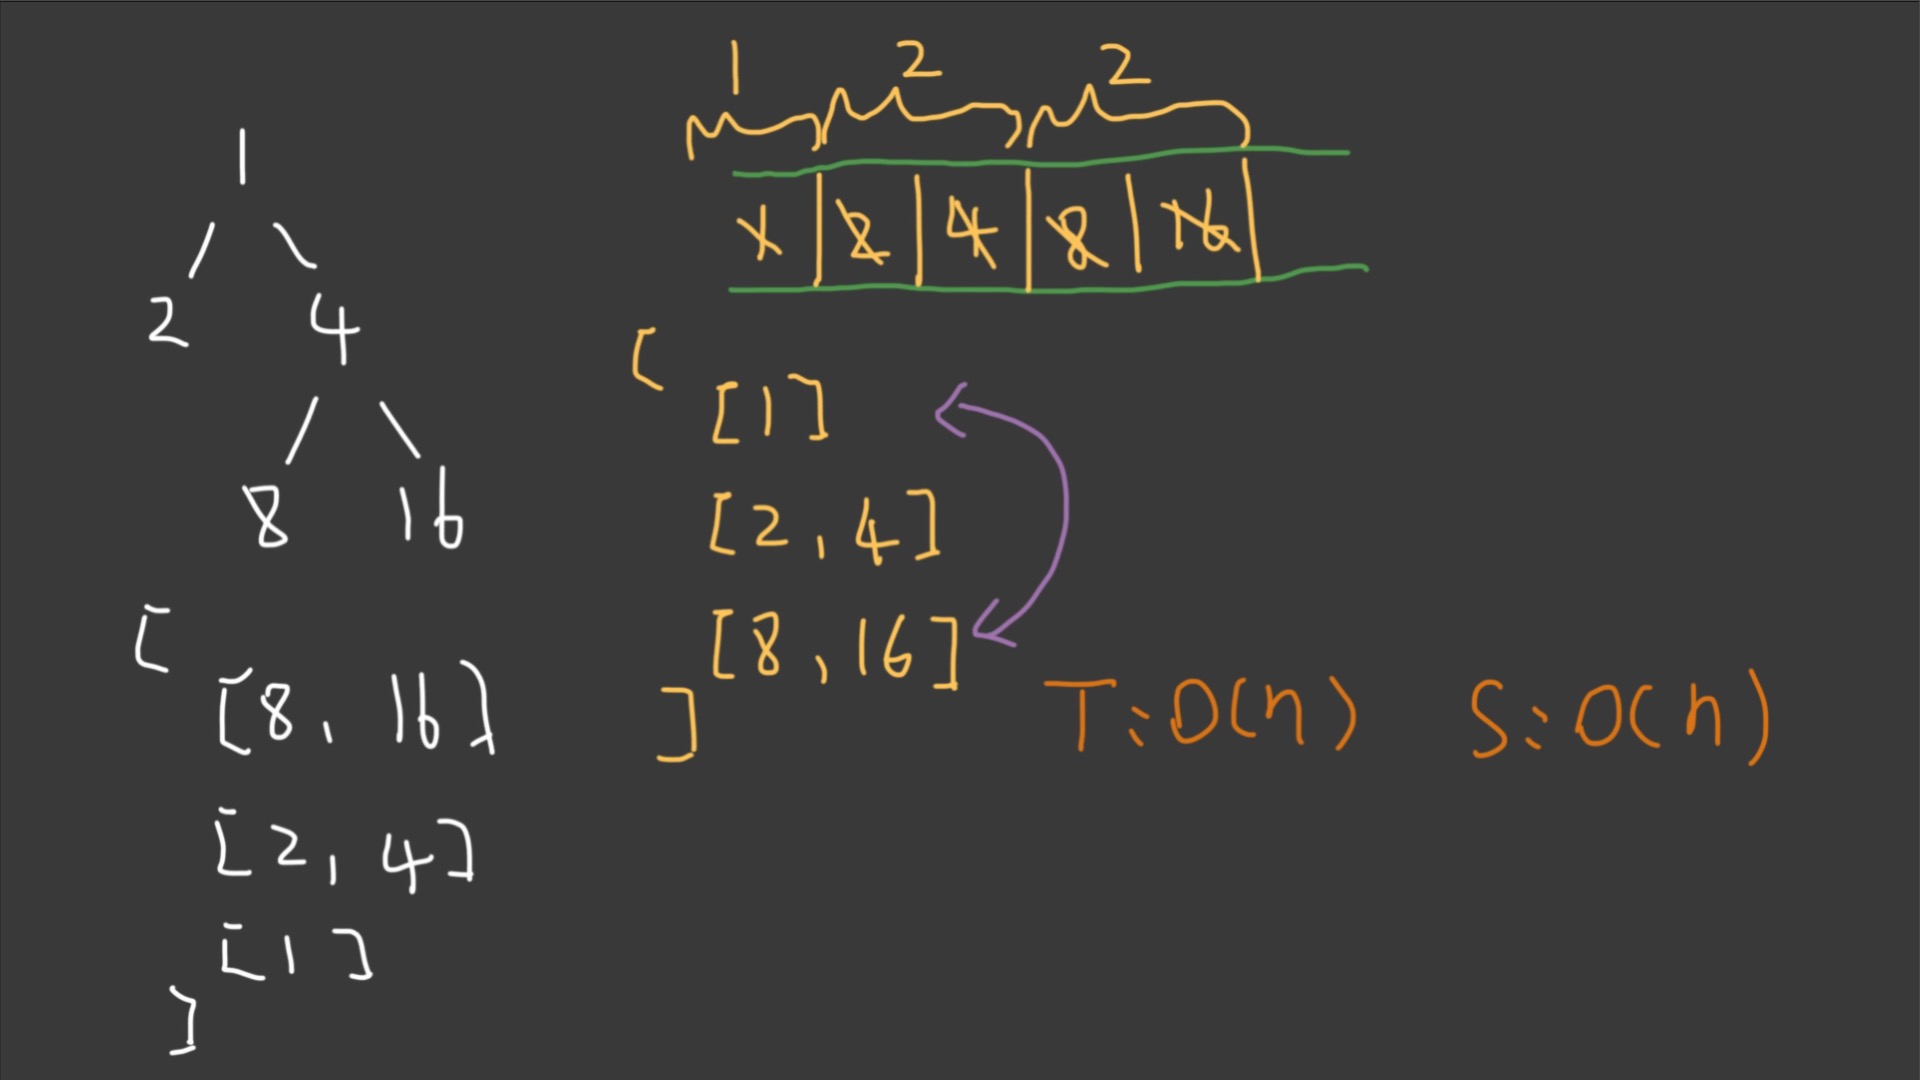 1
2 4
8 16
[
[8, 16]
[2, 4]
[1]
]
1 2 2
1 2 4 8 16
[
[1]
[2, 4]
[8, 16]
]
T: O(n) S: O(n)